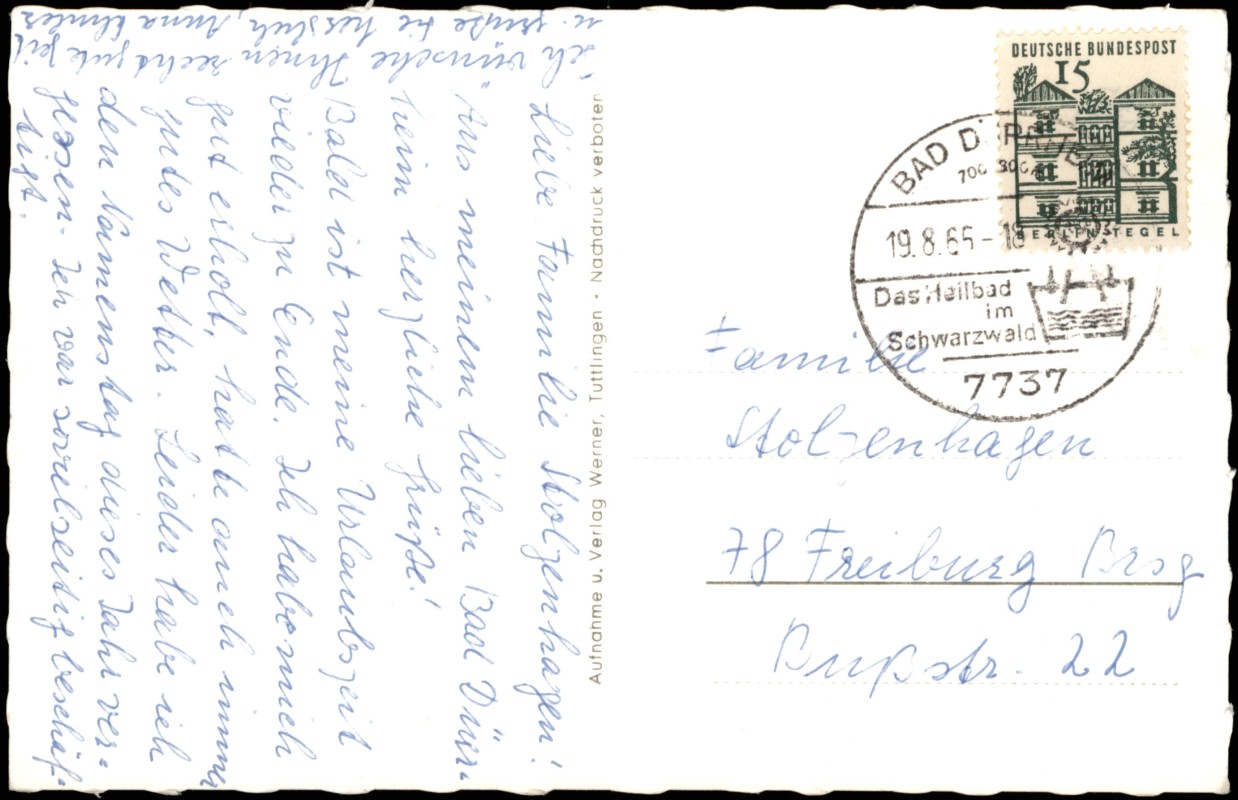 Liebe Familie Stolzenhagen!
Aus meinem lieben Bad Dürr-
heim herzliche Grüße!
Bald ist meine Urlaubszeit
wieder zu Ende. Ich habe mich
gut erholt, hatte auch immer
gutes Wetter. Leider habe ich
den Namenstag dieses Jahr ver-
gessen. Ich war so vielseitig beschäf-
tigt.
Ich wünsche Ihnen recht gute Zeit
u. grüße Sie herzlich, Anna
Aufnahme u. Verlag Werner, Tuttlingen · Nachdruck verboten
DEUTSCHE BUNDESPOST
15
BERLIN-TEGEL
BAD DÜRRHEIM
700-800m
19.8.65-18
Das Heilbad
im
Schwarzwald
7737
Familie
Stolzenhagen
78 Freiburg Brsg
Bußstr. 22